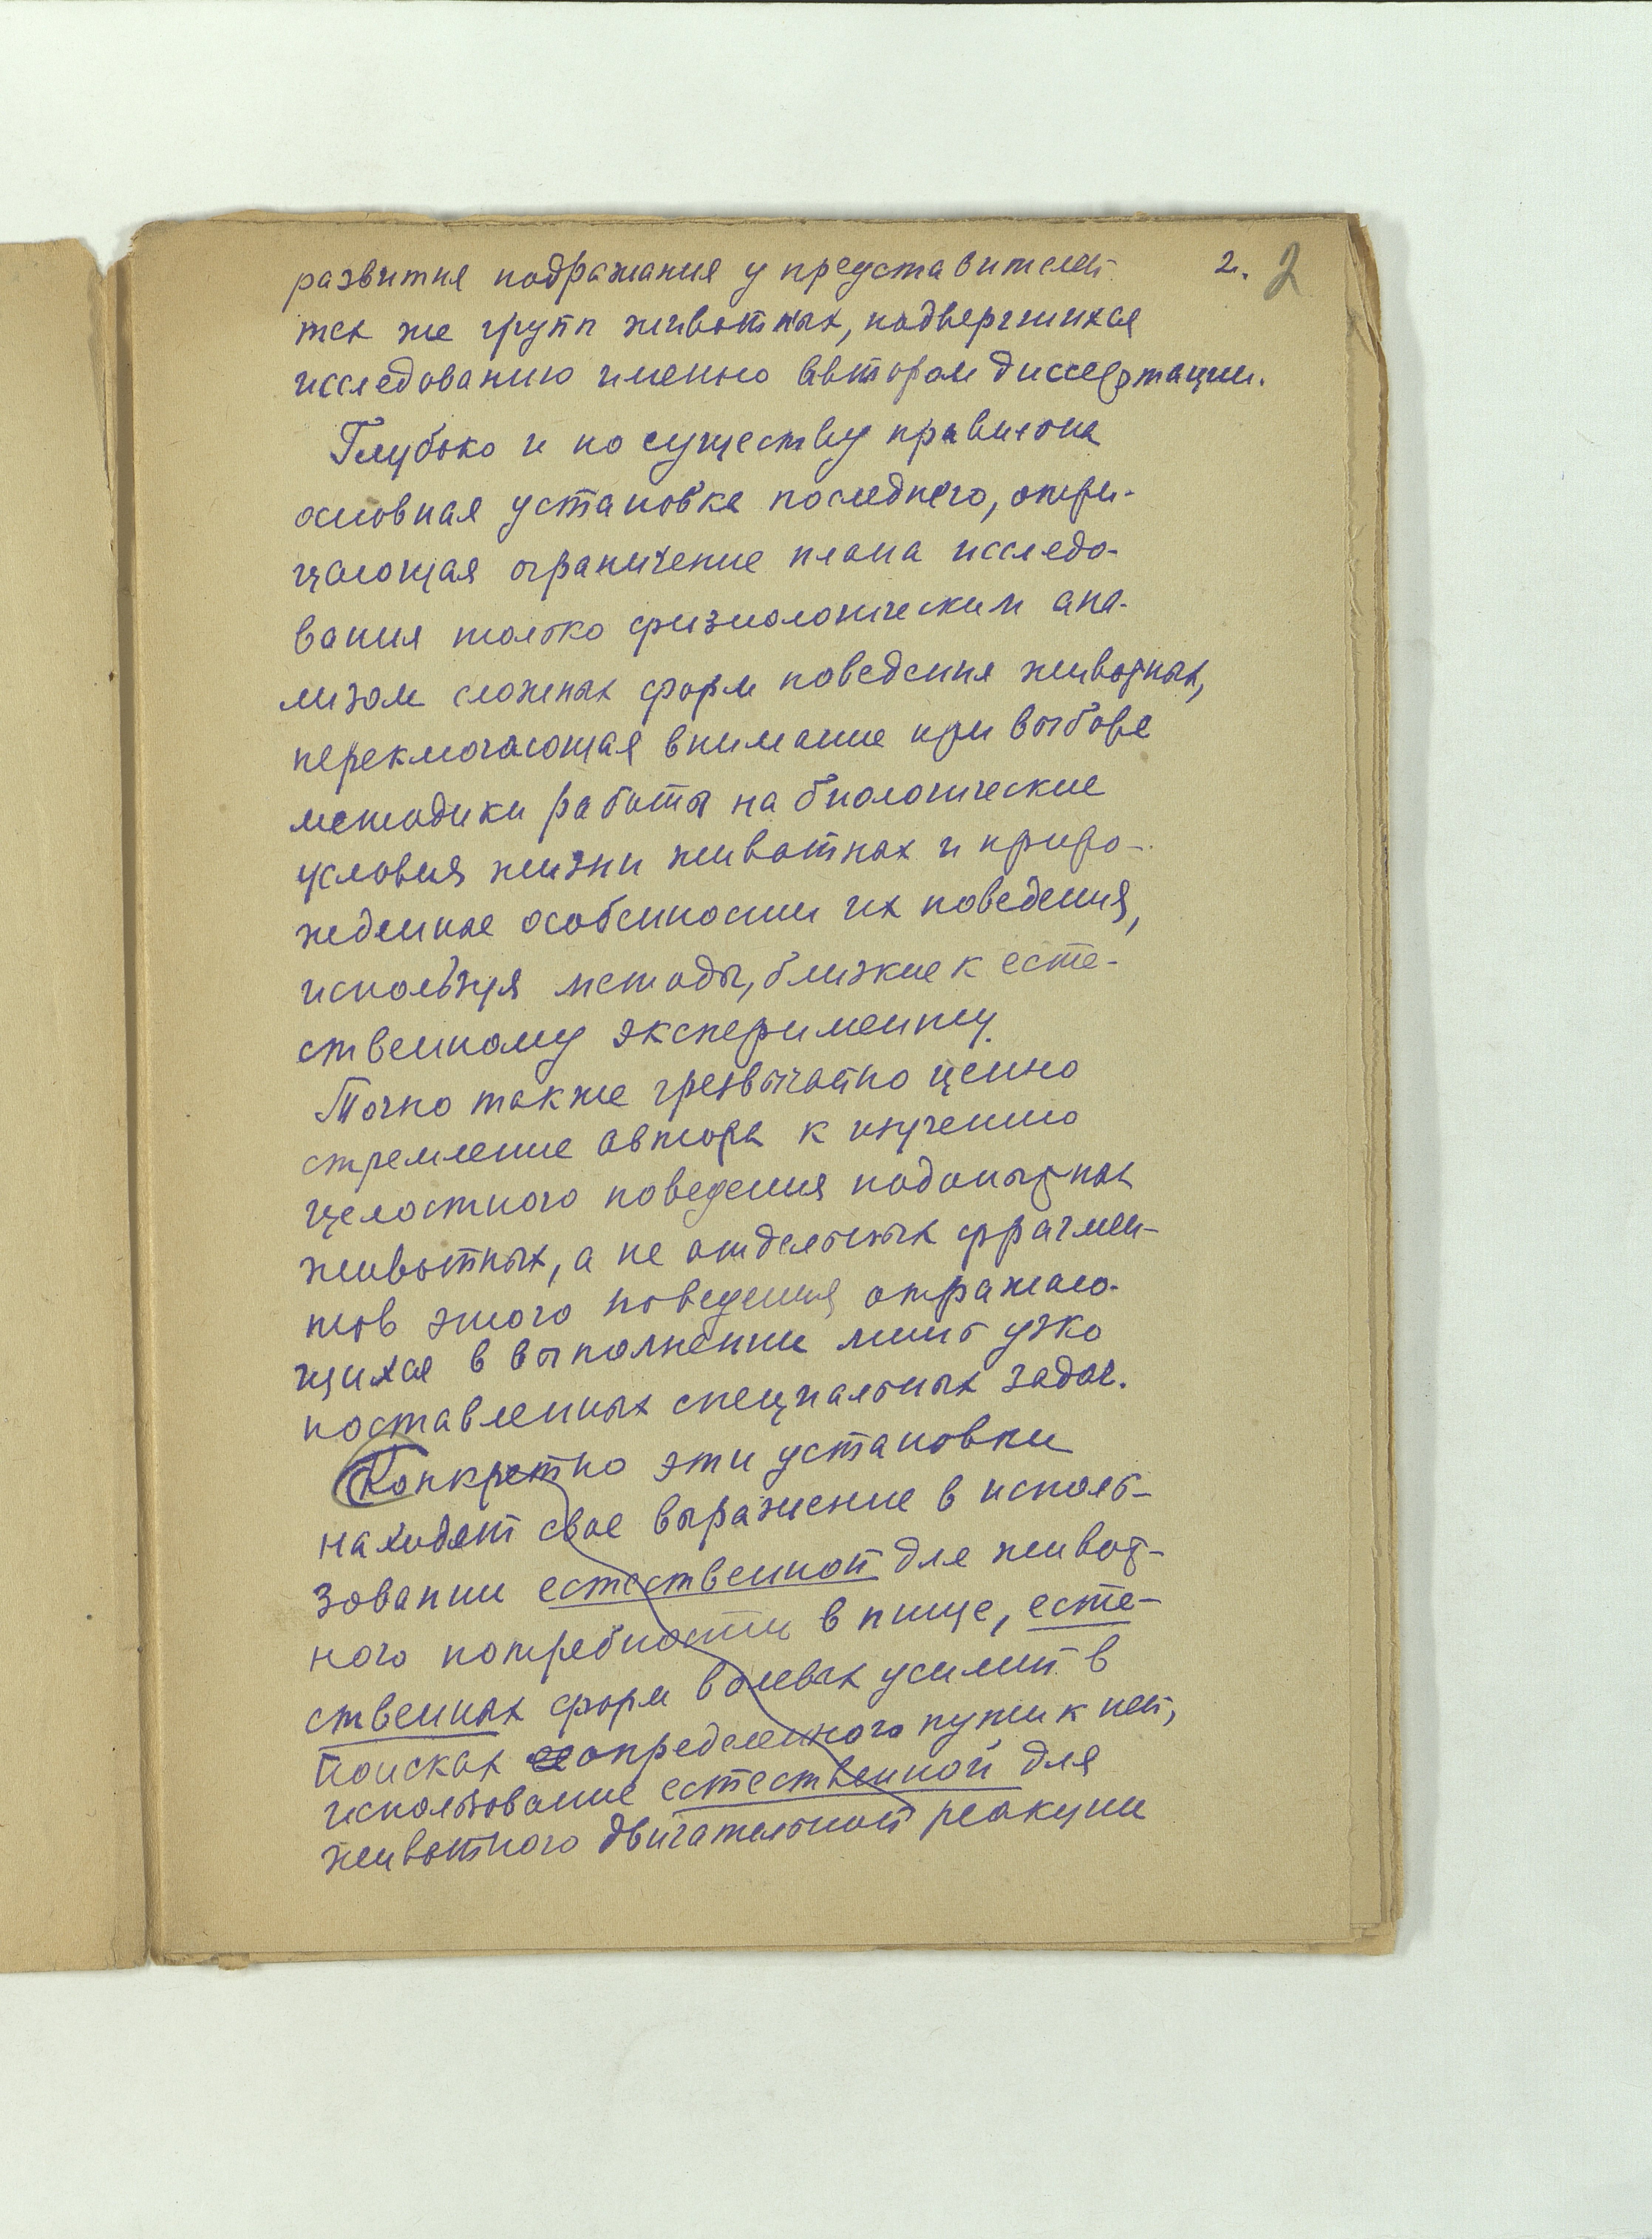 развития подражания у представителей 2. 2
тех же групп животных, подвергшихся
исследованию именно автором диссертации.
Глубоко и по существу правильна
основная установка последнего, отри-
цающая ограничение плана исследо-
вания только физиологическим ана-
лизом сложных форм поведения животных,
переключающая внимание при выборе
методики работы на биологические
условия жизни животных и приро-
жденные особенности их поведения,
используя методы, близкие к есте-
ственному эксперименту.
Точно также чрезвычайно ценно
стремление автора к изучению
целостного поведения подопытных
животных, а не отдельных фрагмен-
тов этого поведения отражаю-
щихся в выполнении лишь узко
поставленных специальных задач.
Конкретно эти установки
находят свое выражение в исполь-
зовании естественной для живот-
ного потребности в пище, есте-
ственных форм волевых усилий в
поисках определенного пути к ней,
использование естественной для
животного двигательной реакции